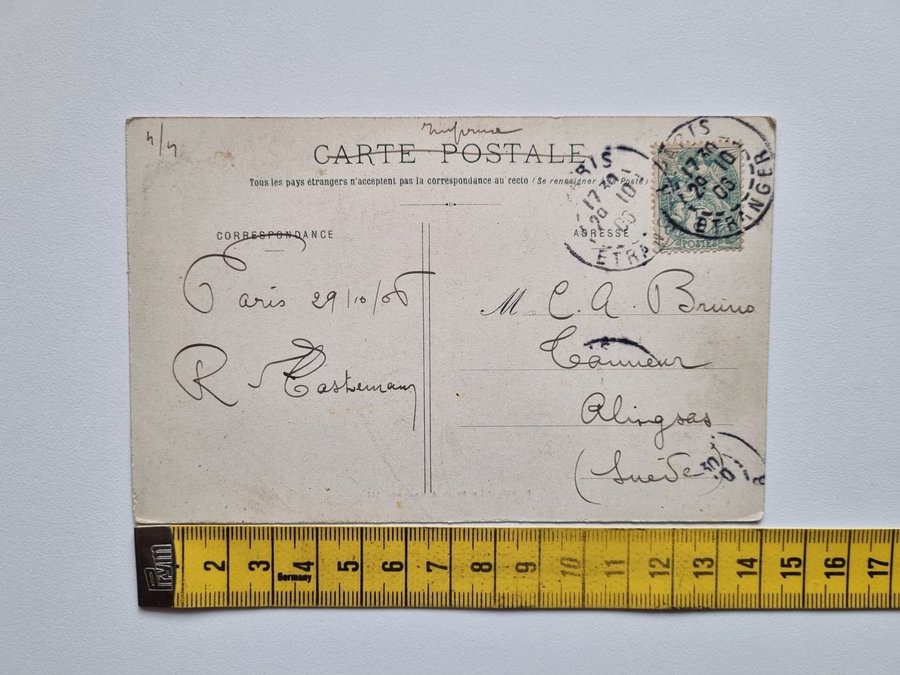 4/4
Imprimé
CARTE POSTALE
Tous les pays étrangers n'acceptent pas la correspondance au recto (Se renseigner à la Poste)
CORRESPONDANCE
ADRESSE
PARIS
17 30
29 10
06
ETRANGER
PARIS
17 30
29 10
06
ETRANGER
POSTES
Paris 29/10/06
R
M C. A. Bruno
Tanneur
Alingsas
(Suède)
Germany
2 3 4 5 6 7 8 9 10 11 12 13 14 15 16 17